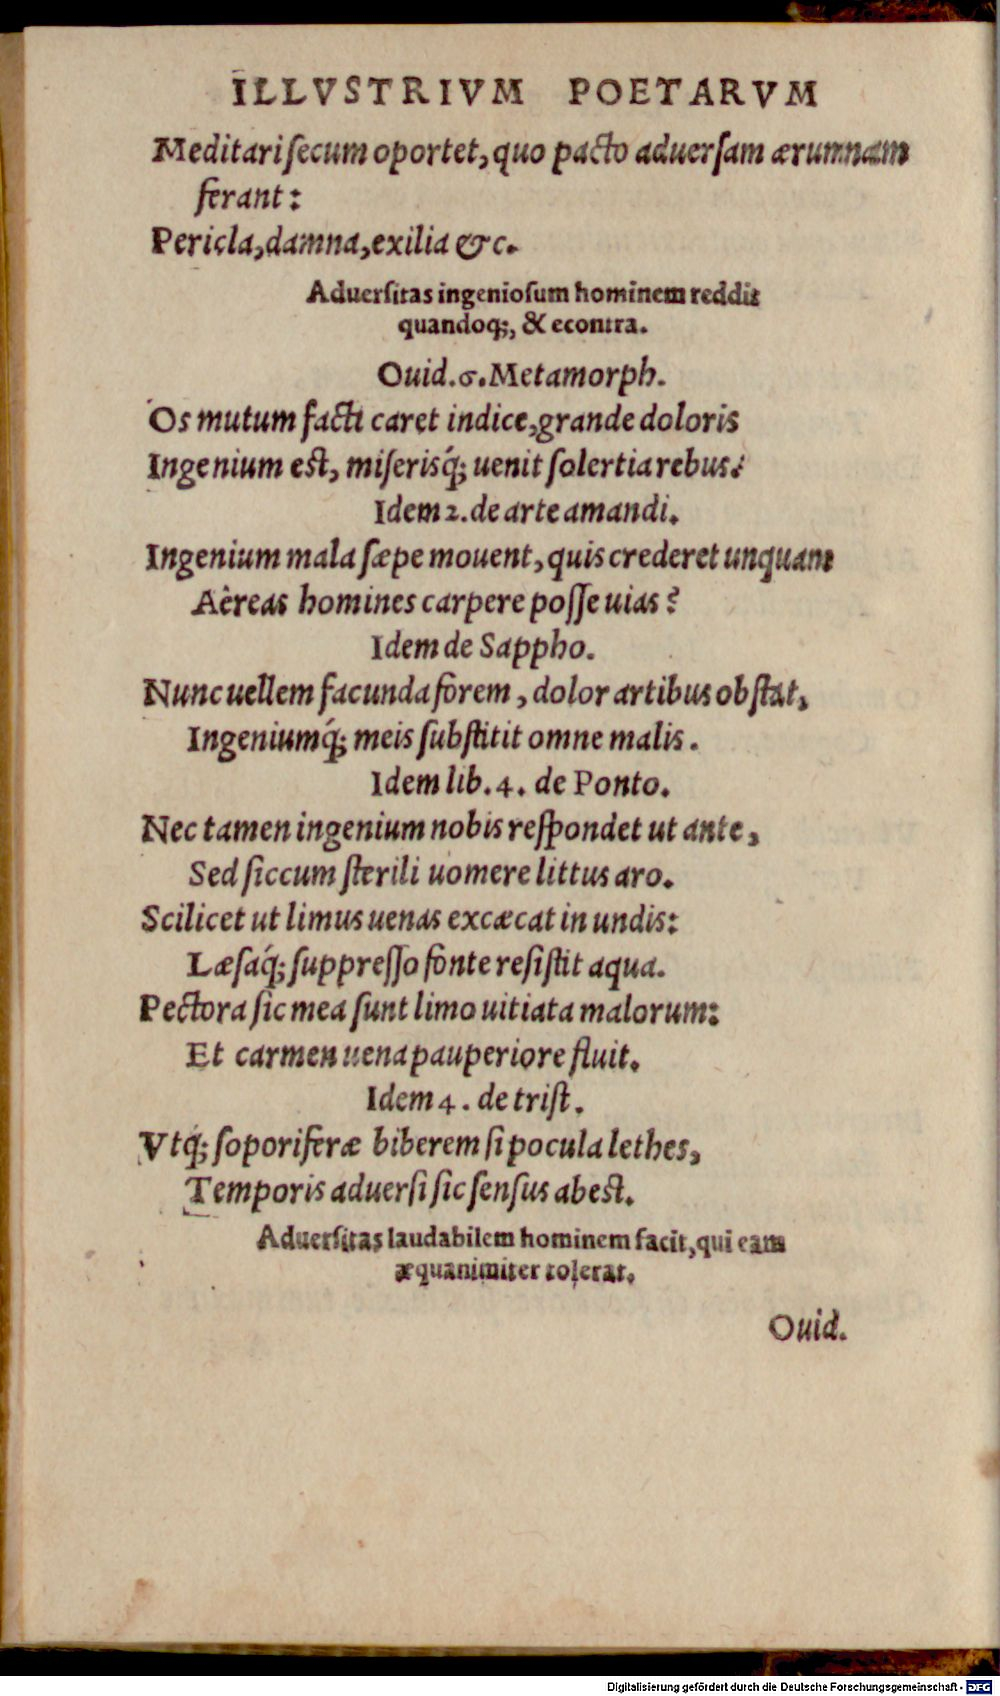 ILLVSTRIVM POETARVM
Meditari ſecum oportet, quo pacto aduerſam ærumnam
ferant:
Pericla, damna, exilia &c.
Aduerſitas ingenioſum hominem reddit
quandoq;, & econtra.
Ouid. 6. Metamorph.
Os mutum facti caret indice, grande doloris
Ingenium eſt, miſerisq́; uenit ſolertia rebus.
Idem 2. de arte amandi.
Ingenium mala ſæpe mouent, quis crederet unquam
Aëreas homines carpere poſſe uias?
Idem de Sappho.
Nunc uellem facunda forem, dolor artibus obſtat,
Ingeniumq́; meis ſubſtitit omne malis.
Idem lib. 4. de Ponto.
Nec tamen ingenium nobis reſpondet ut ante,
Sed ſiccum ſterili uomere littus aro.
Scilicet ut limus uenas excæcat in undis:
Læſaq́; ſuppreſſo fonte reſiſtit aqua.
Pectora ſic mea ſunt limo uitiata malorum:
Et carmen uena pauperiore fluit.
Idem 4. de triſt.
Vtq́; ſoporiferæ biberem ſi pocula lethes,
Temporis aduerſi ſic ſenſus abeſt.
Aduerſitas laudabilem hominem facit, qui eam
æquanimiter tolerat.
Ouid.
Digitalisierung gefördert durch die Deutsche Forschungsgemeinschaft - DFG